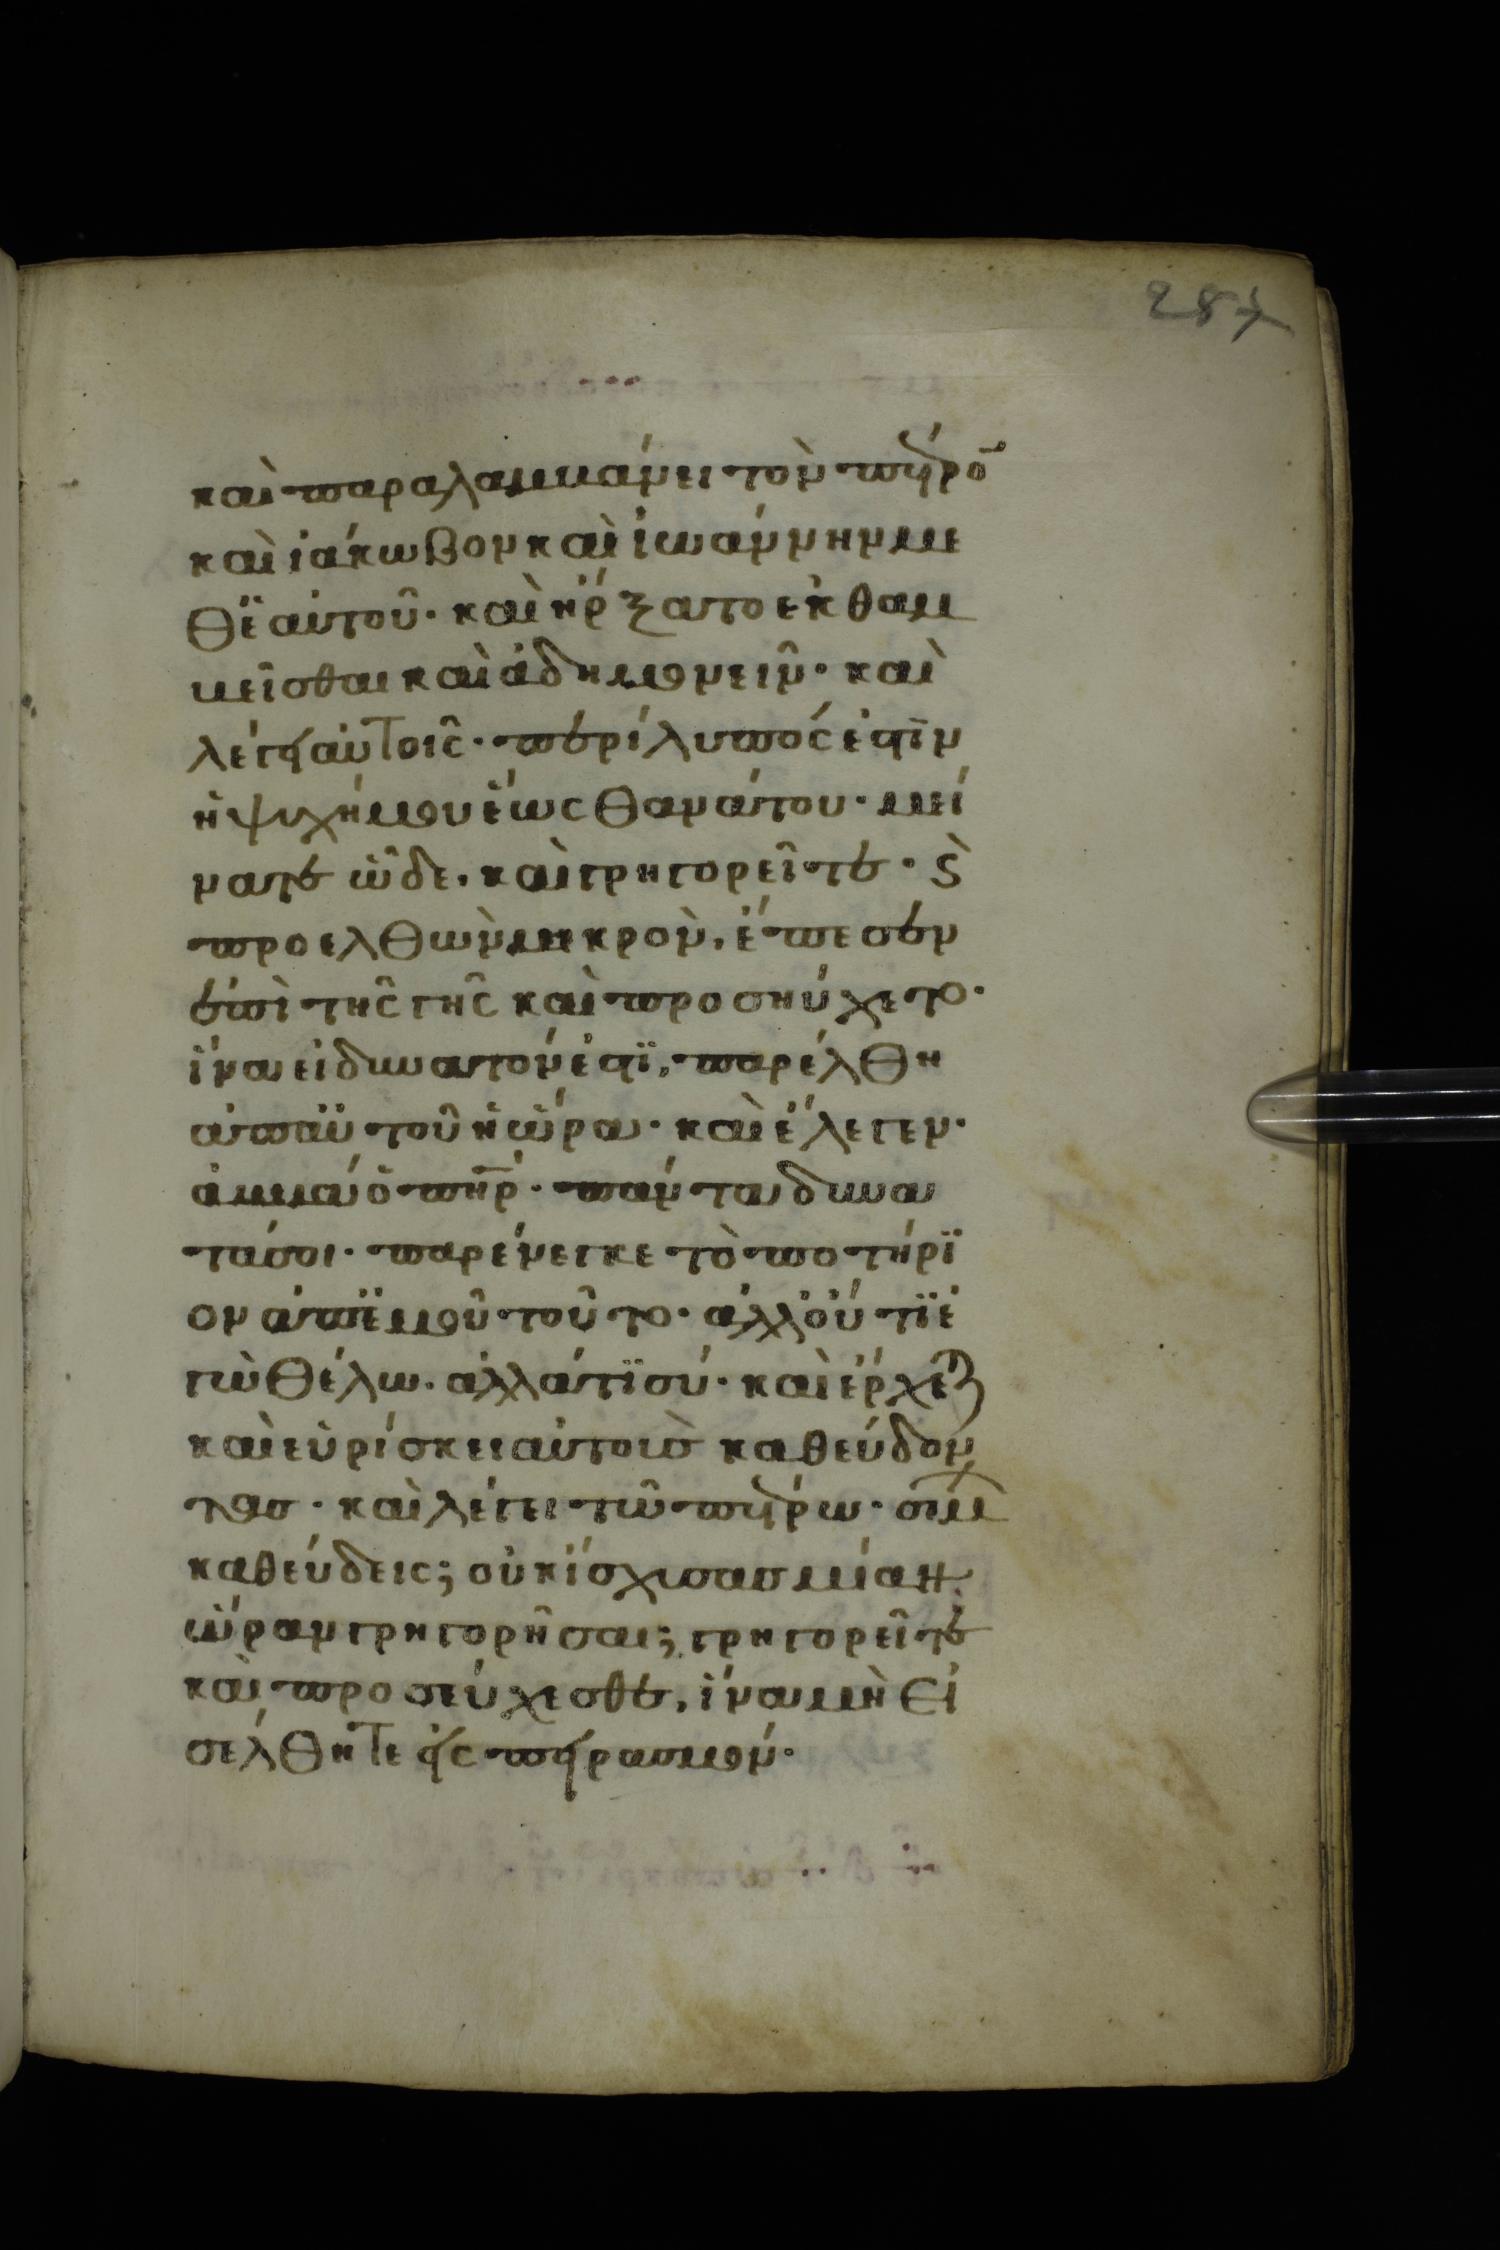 287
καὶ παραλαμβάνει τὸν πέτρο̅
καὶ ἰάκωβον καὶ ἰωάννην με
θ' ἑαυτοῦ· καὶ ἤρξατο ἐκθαμ
βεῖσθαι καὶ ἀδημονεῖν· καὶ
λέγει αὐτοῖς· περίλυπός ἐστιν
ἡ ψυχή μου ἕως θανάτου· μεί
νατε ὧδε, καὶ γρηγορεῖτε· ϛ̀
προελθὼν μικρὸν, ἔπεσεν
ἐπὶ τῆς γῆς καὶ προσηύχετο·
ἵνα εἰ δυνατόν ἐστϊ, παρέλθη
ἀπ' αὐτοῦ ἡ ὥρα· καὶ ἔλεγεν·
ἀββά ὁ πη̅ρ· πάντα δυνα
τά σοι· παρένεγκε τὸ ποτήρϊ
ον ἀπ' ἐμοῦ τοῦτο· ἀλλ' οὐ τϊ ἐ
γὼ θέλω. ἀλλά τϊ σύ· καὶ ἔρχεται
καὶ εὑρίσκει αὐτοὺς καθεύδον
τας· καὶ λέγει τῶ πέτρω· σιμ
καθεύδεις; οὐκ ἴσχυσας μίαν
ὥραν γρηγορῆσαι; γρηγορεῖτε
καὶ προσεύχεσθε, ἵνα μὴ εἰ
σέλθητε εἰς πειρασμόν·